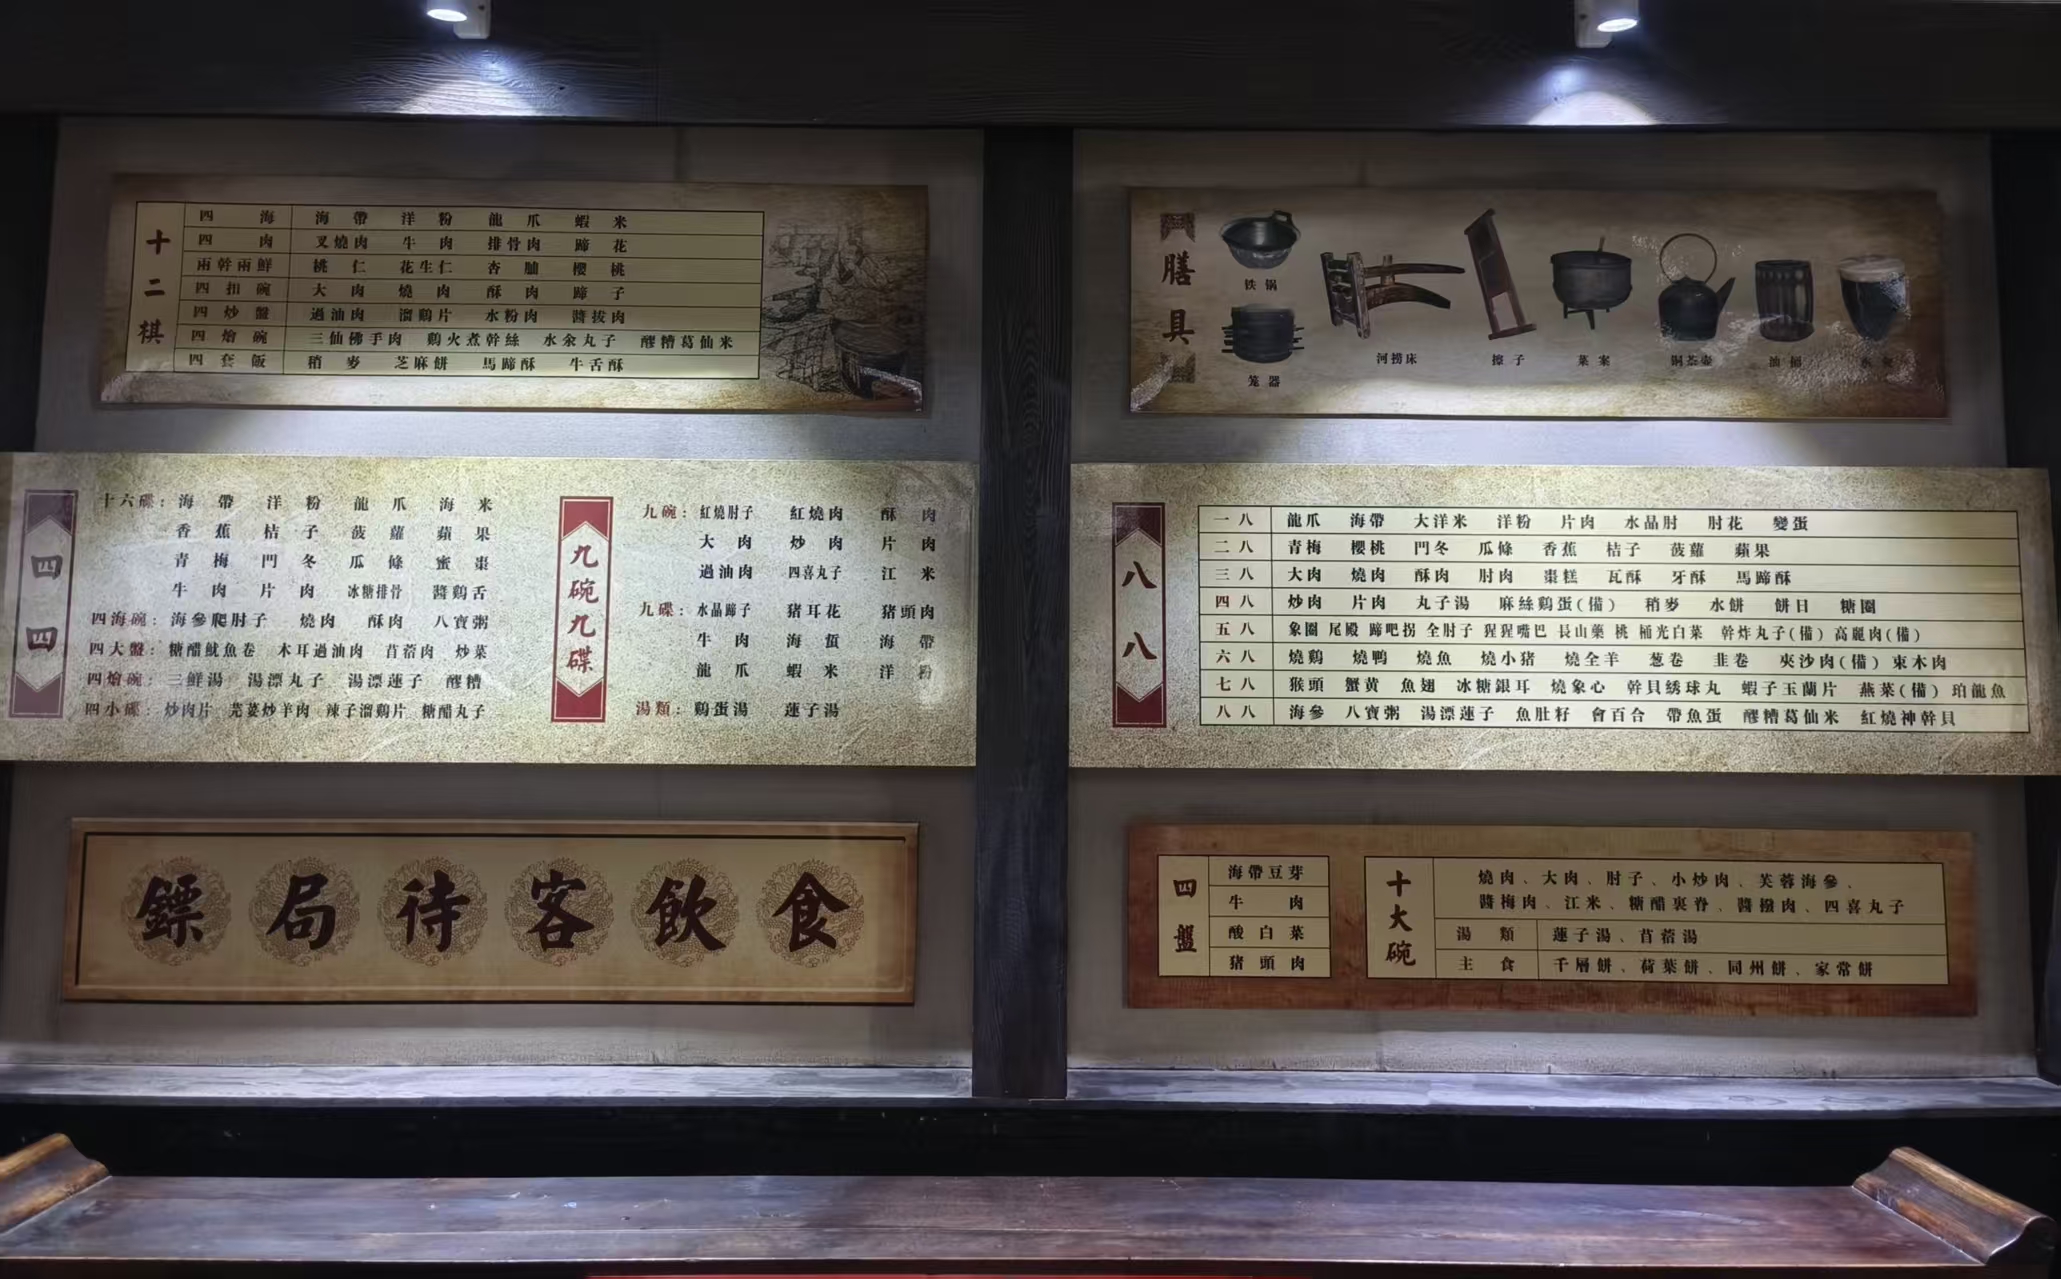 十二棋
四海 海帶 洋粉 龍爪 蝦米
四肉 叉燒肉 牛肉 排骨肉 蹄花
兩幹兩鮮 桃仁 花生仁 杏脯 櫻桃
四扣碗 大肉 燒肉 酥肉 蹄子
四炒盤 過油肉 溜鷄片 水粉肉 醬拔肉
四燴碗 三仙佛手肉 鷄火煮幹絲 水汆丸子 醪糟葛仙米
四套飯 稍麥 芝麻餅 馬蹄酥 牛舌酥
膳具
铁锅
笼器
河捞床
擦子
菜案
铜茶壶
油桶
四四
十六碟：海帶 洋粉 龍爪 海米
香蕉 桔子 菠蘿 蘋果
青梅 門冬 瓜條 蜜棗
牛肉 片肉 冰糖排骨 醬鷄舌
四海碗：海參爬肘子 燒肉 酥肉 八寶粥
四大盤：糖醋魷魚卷 木耳過油肉 苜蓿肉 炒菜
四燴碗：三鮮湯 湯漂丸子 湯漂蓮子 醪糟
四小碟：炒肉片 芫荽炒羊肉 辣子溜鷄片 糖醋丸子
九碗九碟
九碗：紅燒肘子 紅燒肉 酥肉
大肉 炒肉 片肉
過油肉 四喜丸子 江米
九碟：水晶蹄子 豬耳花 豬頭肉
牛肉 海蜇 海帶
龍爪 蝦米 洋粉
湯類：鷄蛋湯 蓮子湯
八八
一八 龍爪 海帶 大洋米 洋粉 片肉 水晶肘 肘花 變蛋
二八 青梅 櫻桃 門冬 瓜條 香蕉 桔子 菠蘿 蘋果
三八 大肉 燒肉 酥肉 肘肉 棗糕 瓦酥 牙酥 馬蹄酥
四八 炒肉 片肉 丸子湯 麻絲鷄蛋(備) 稍麥 水餅 餅日 糖圈
五八 象圈 尾殿 蹄吧拐 全肘子 猩猩嘴巴 長山藥 桃 桶光白菜 幹炸丸子(備) 高麗肉(備)
六八 燒鷄 燒鴨 燒魚 燒小猪 燒全羊 葱卷 韭卷 夾沙肉(備) 東木肉
七八 猴頭 蟹黄 魚翅 冰糖銀耳 燒象心 幹貝綉球丸 蝦子玉蘭片 燕菜(備) 珀龍魚
八八 海參 八寶粥 湯漂蓮子 魚肚籽 會百合 帶魚蛋 醪糟葛仙米 紅燒神幹貝
鏢局待客飲食
四盤
海帶豆芽
牛肉
酸白菜
猪頭肉
十大碗
燒肉、大肉、肘子、小炒肉、芙蓉海參、
醬梅肉、江米、糖醋裏脊、醬撥肉、四喜丸子
湯類 蓮子湯、苜蓿湯
主食 千層餅、荷葉餅、同州餅、家常餅